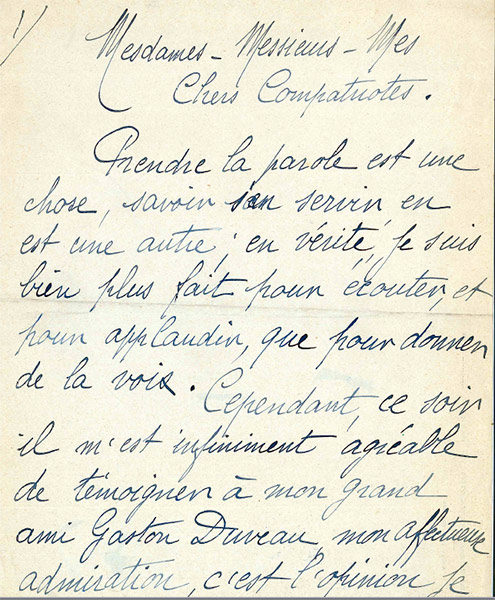 1/
Mesdames - Messieurs - Mes
Chers Compatriotes.
Prendre la parole est une
chose, savoir s'en servir en
est une autre ; en vérité, je suis
bien plus fait pour écouter, et
pour applaudir, que pour donner
de la voix. Cependant, ce soir
il m'est infiniment agréable
de témoigner à mon grand
ami Gaston Duveau, mon affectueuse
admiration, c'est l'opinion je